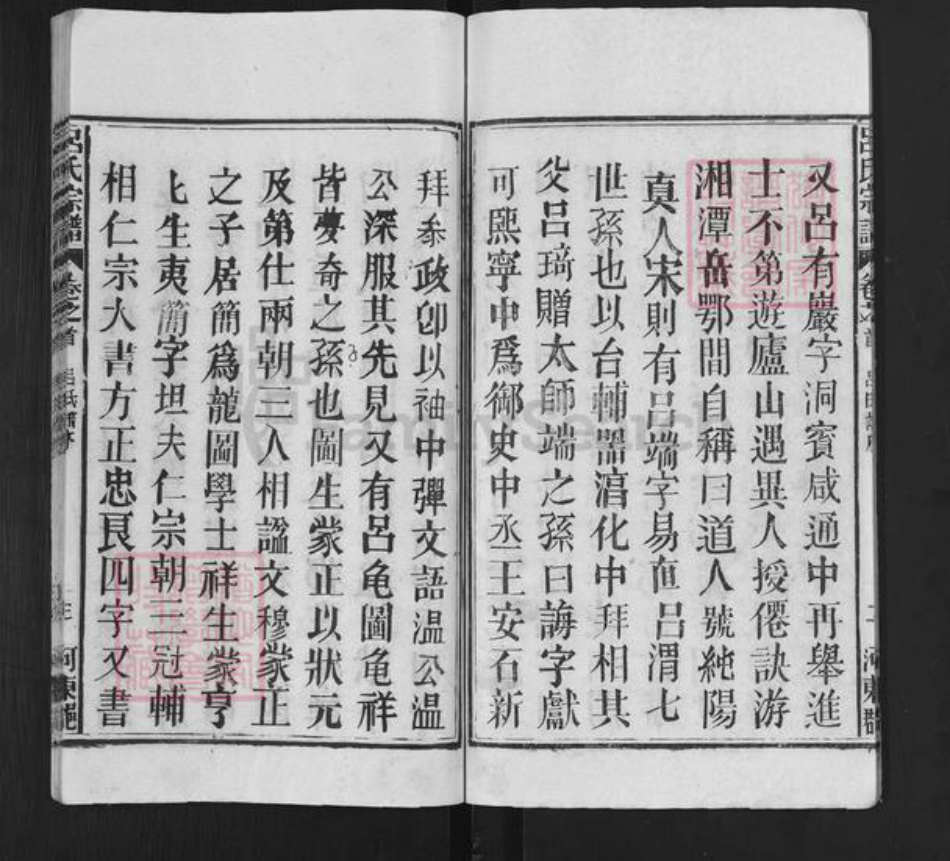 又呂有巖字洞賓咸通中再舉進
士不第遊廬山遇異人授僊訣游
湘潭岳鄂間自稱曰道人號純陽
真人宋則有呂端字易直呂渭七
世孫也以台輔器滔化中拜相其
父呂琦贈太師端之孫曰誨字獻
可熙寧中爲御史中丞王安石新
拜參政卽以袖中彈文語温公温
公深服其先見又有呂龟圖龟祥
皆夢奇之孫也圖生蒙正以狀元
及第仕兩朝三入相諡文穆蒙正
之子居簡爲龍圖學士祥生蒙亨
生夷簡字坦夫仁宗朝冠輔
相仁宗大書方正忠良四字又書
呂氏宗譜
卷之首
FamilySearch